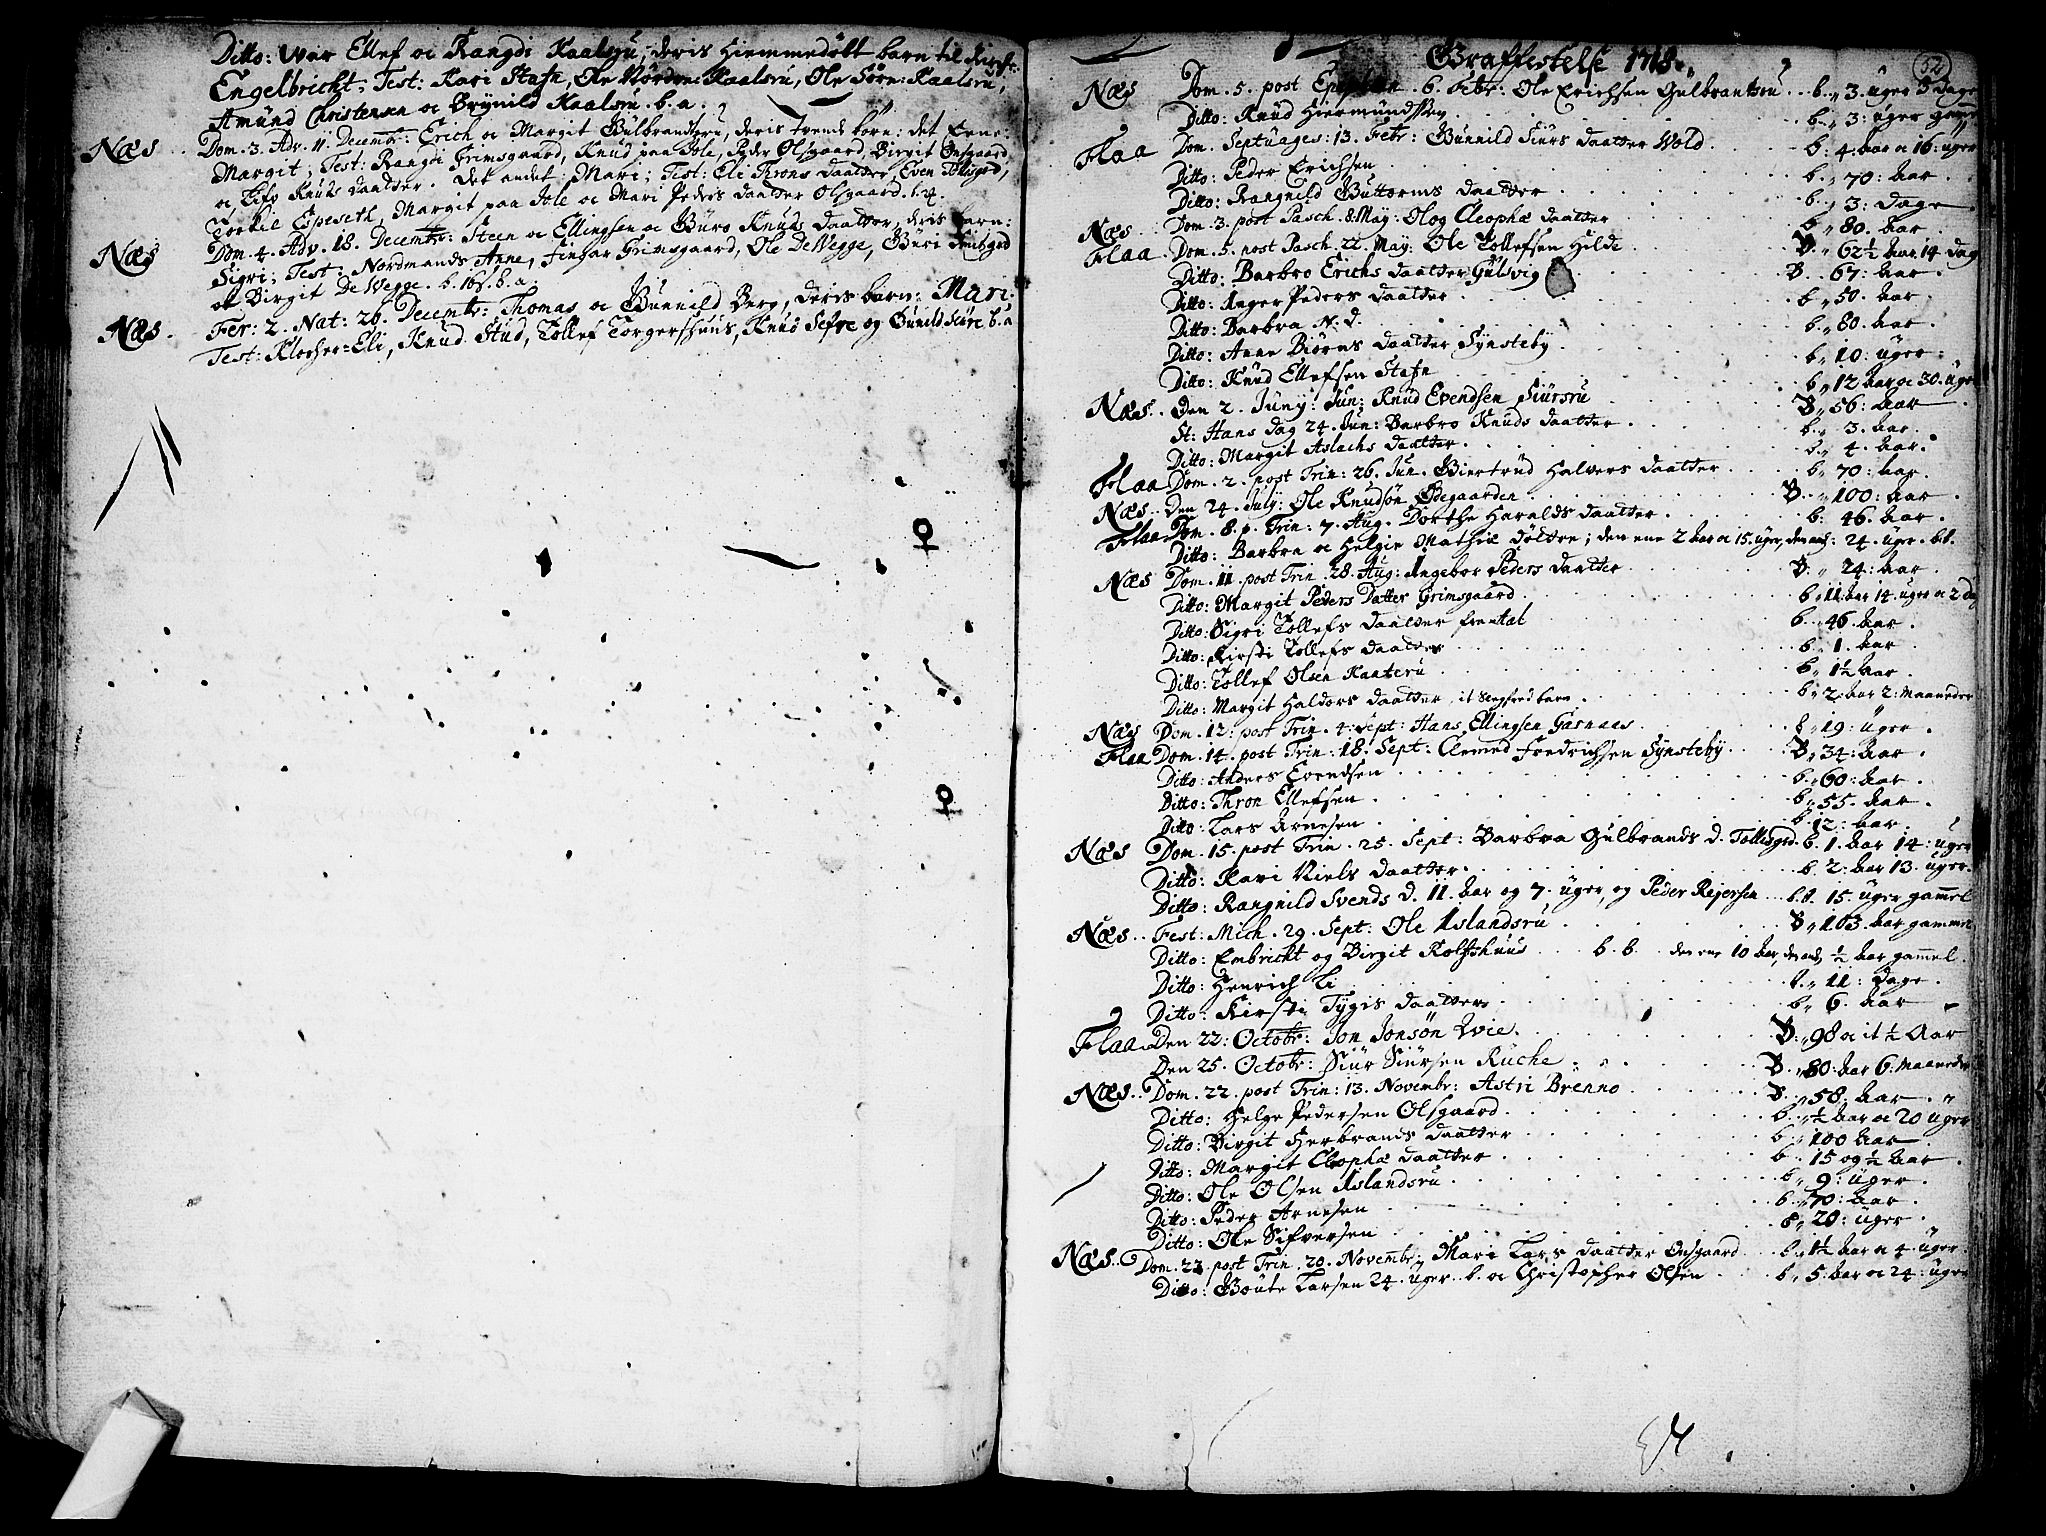 Ditto: War Ellef oc Rangdi Kaalsru, deris Hiemmedöbt barn til Kirche.
Engelbricht; Test: Kari Stafn, Ole Norden: Kaalsru, Ole Sörn: Kaalsru,
Amund Christensen oc Brynild Kaalsru. b. a.
Næs Dom. 3. Adv. 11. Decembr: Erich oc Margit Gulbrandsru, deris trende börn: det Eene:
Margit; Test: Rangdi Grimsgaard, Knud paa Jole, Peder Olsgaard, Birgit Onsgaard,
oc Lifv Knuds daatter. Det andet: Mari; Test: Eli Throns daatter, Even Tollisgrd,
Torkil Espeseth, Margit paa Jole oc Mari Peders daatter Olsgaard. b. a.
Næs Dom. 4. Adv. 18. Decembr: Steen oc Ellingsen oc Buro Knuds daatter, deris barn:
Sigri; Test: Nordmands Anne, Finhar Grimsgaard, Ole De Vegge, Buri Smitsgrd
oc Birgit De Vegge. b. 16s. b. a.
Næs. Fer: 2. Nat: 26. Decembr: Thomas oc Gunnild Berg, deris barn: Mari.
Test: Klocher-Eli, Knud Stud, Tollef Torgershuus, Knud Sefre og Gunild Sciöre b. a
52
Graffestelse 1718.
Næs Dom. 5. post Epiphan. 6. Febr: Ole Erichsen Gulbrantsru . . b. 3. uger 3 dage
Ditto: Knud Hiermundssen . b. 3: uger gamel
Flaa Dom. Septuages: 13. Febr: Gunnild Siurs daatter Wold . b: 4. aar oc 16: uger
Ditto: Peder Erichsen . b. 70: aar.
Ditto: Rangnild Guttorms daatter . b. 3: dage
Næs. Dom. 3. post Pasch. 8. May: Olog Cleophæ daatter b. 80. aar.
Flaa. Dom. 5. post Pasch. 22. May: Ole Tollefsen Hilde B. 62½ aar 14 dag
Ditto: Barbro Erichs daatter Gulsvig B. 67: aar.
Ditto: Anger Peders daatter . b. 50. aar.
Ditto: Barbra N. d. . b. 80. aar.
Ditto: Anne Biörns daatter Synsteby. b. 10: uger.
Ditto: Knud Ellefsen Stafn b. 12 aar oc 30. uger
Næs. Den 2. Juny: Jun: Knud Evendsen Siursru B. 56: aar.
St: Hans dag 24. Jun: Barbro Knuds daatter . b. 3. aar.
Ditto: Margit Aslachs daatter. b. 4. aar.
Flaa Dom. 2. post Trin: 26. Jun. Giertrud Halvors daatter . b. 70: aar.
Næs. Den 24. July: Ole Knudsön Ödegaarden . B. 100: aar.
Flaa. Dom. 8. p. Trin: 7. Aug. Dorthe Haralds daatter . b: 46. aar.
Ditto: Barbra oc Helgie Mathiæ döttre; den ene 2 aar oc 15. uger, den and: 24. uger. b.b.
Næs Dom. 11. post Trin. 28. Aug: Angebor Peders daatter B. 24: aar.
Ditto: Margit Peders Datter Grimsgaard . b. 11. aar 14. uger oc 2 dag
Ditto: Sigri Tollefs daatter frental b. 46. aar.
Ditto: Kirsti Tollefs daatter . b. 1. aar.
Ditto: Tollef Olsen Kaateru b. 1½ aar.
Ditto: Margit Haldors daatter, it Sengfred barn. b. 2: aar 2: maaneder
Næs Dom. 12: post Trin. 4: Sept: Hans Ellingsen Garnaas . b. 19: uger.
Flaa Dom. 14. post Trin: 18. Sept: Amund Fredrichsen Synsteby. B. 34: aar.
Ditto: Anders Evendsen . b. 60: aar.
Ditto: Thron Ellefsen . b. 55. aar.
Ditto: Lars Arnesen b. 12: aar.
Næs Dom. 15. post Trin. 25. Sept: Barbra Gulbrands d. Tollisgrd. b. 1. aar 14: uger
Ditto: Kari Niels daatter. b. 2: aar 13. uger.
Ditto: Rangnild Svends d. 11. aar og 7. uger, og Peder Rejersen . b. b. 15. uger gamel
Næs. Fest: Mich. 29. Sept: Ole Aslandsru . B. 103. aar gammel
Ditto: Embricht og Birgit Rolfshuus b. b. den ene 10 aar, den and ½ aar gamel.
Ditto: Henrich Li b. 11: dage.
Ditto: Kirsti Tygis daatter. b. 6. aar
Flaa. Den 22: Octobr: Jon Jonsön Lvie. B. 98 oc it ½ Aar
Den 25. Octobr: Siur Siursen Ruche . B. 80: aar 6. maaneder
Næs. Dom. 22. post Trin: 13. Novembr: Astri Brenno . B. 58: aar.
Ditto: Helge Pedersen Olsgaard. b. ½ aar oc 20 uger
Ditto: Birgit Herbrands daatter b. 100 aar.
Ditto: Margit Cleophæ daatter b. 15 og ½ aar.
Ditto: Ole Olsen Aslandsru . b. 9: uger.
Ditto: Peder Arnesen b. 70: aar.
Ditto: Ole Sifversen . b. 20: uger.
Næs. Dom. 23. post Trin. 20. Novembr: Mari Lars daatter Onsgaard . b. 1½ aar oc 4. uger.
Ditto: Goute Larsen 24. uger. b. oc Christopher Olsen . b. 5. aar oc 24: uger